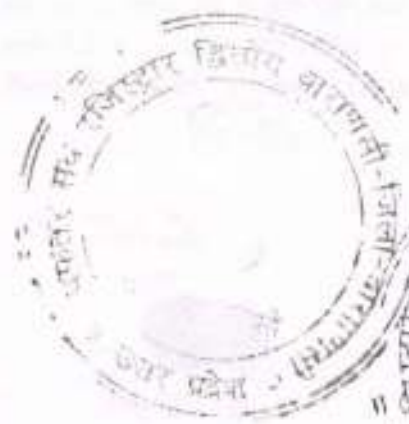 दफ्तर सब रजिस्ट्रार द्वितीय वाराणसी-जिला-वाराणसी
उत्तर प्रदेश